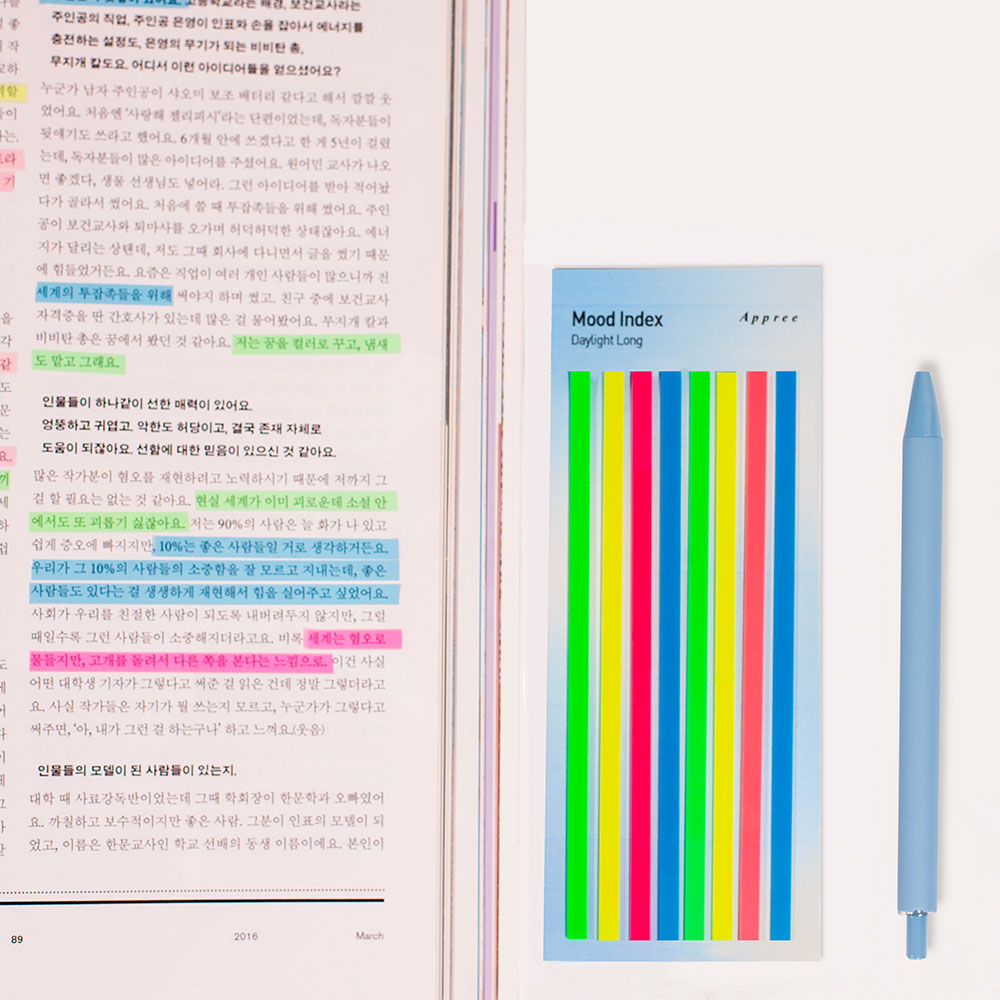 고등학교라는 배경, 보건교사라는
주인공의 직업, 주인공 은영이 인표와 손을 잡아서 에너지를
충전하는 설정도, 은영의 무기가 되는 비비탄 총,
무지개 칼도요. 어디서 이런 아이디어들을 얻으셨어요?
누군가 남자 주인공이 샤오미 보조 배터리 같다고 해서 깔깔 웃
었어요. 처음엔 ‘사랑해 젤리피시’라는 단편이었는데, 독자분들이
뒷얘기도 쓰라고 했어요. 6개월 안에 쓰겠다고 한 게 5년이 걸렸
는데, 독자분들이 많은 아이디어를 주셨어요. 원어민 교사가 나오
면 좋겠다, 생물 선생님도 넣어라. 그런 아이디어를 받아 적어놨
다가 골라서 썼어요. 처음에 쓸 때 투잡족들을 위해 썼어요. 주인
공이 보건교사와 퇴마사를 오가며 허덕허덕한 상태잖아요. 에너
지가 달리는 상탠데, 저도 그때 회사에 다니면서 글을 썼기 때문
에 힘들었거든요. 요즘은 직업이 여러 개인 사람들이 많으니까 전
세계의 투잡족들을 위해 써야지 하며 썼고. 친구 중에 보건교사
자격증을 딴 간호사가 있는데 많은 걸 물어봤어요. 무지개 칼과
비비탄 총은 꿈에서 봤던 것 같아요. 저는 꿈을 컬러로 꾸고, 냄새
도 맡고 그래요.
인물들이 하나같이 선한 매력이 있어요.
엉뚱하고 귀엽고. 악한도 허당이고, 결국 존재 자체로
도움이 되잖아요. 선함에 대한 믿음이 있으신 것 같아요.
많은 작가분이 혐오를 재현하려고 노력하시기 때문에 저까지 그
걸 할 필요는 없는 것 같아요. 현실 세계가 이미 괴로운데 소설 안
에서도 또 괴롭기 싫잖아요. 저는 90%의 사람은 늘 화가 나 있고
쉽게 증오에 빠지지만, 10%는 좋은 사람들일 거로 생각하거든요.
우리가 그 10%의 사람들의 소중함을 잘 모르고 지내는데, 좋은
사람들도 있다는 걸 생생하게 재현해서 힘을 실어주고 싶었어요.
사회가 우리를 친절한 사람이 되도록 내버려두지 않지만, 그럴
때일수록 그런 사람들이 소중해지더라고요. 비록 세계는 혐오로
물들지만, 고개를 돌려서 다른 쪽을 본다는 느낌으로. 이건 사실
어떤 대학생 기자가 그렇다고 써준 걸 읽은 건데 정말 그렇더라고
요. 사실 작가들은 자기가 뭘 쓰는지 모르고, 누군가가 그렇다고
써주면, ‘아, 내가 그런 걸 하는구나’ 하고 느껴요.(웃음)
인물들의 모델이 된 사람들이 있는지.
대학 때 사료강독반이었는데 그때 학회장이 한문학과 오빠였어
요. 까칠하고 보수적이지만 좋은 사람. 그분이 인표의 모델이 되
었고, 이름은 한문교사인 학교 선배의 동생 이름이에요. 본인이
89 2016 March
Mood Index
Appree
Daylight Long